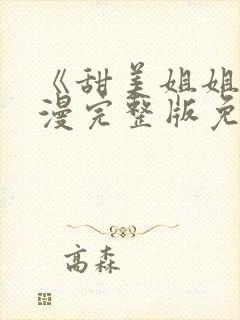 《甜美姐姐
漫完整版免
高森